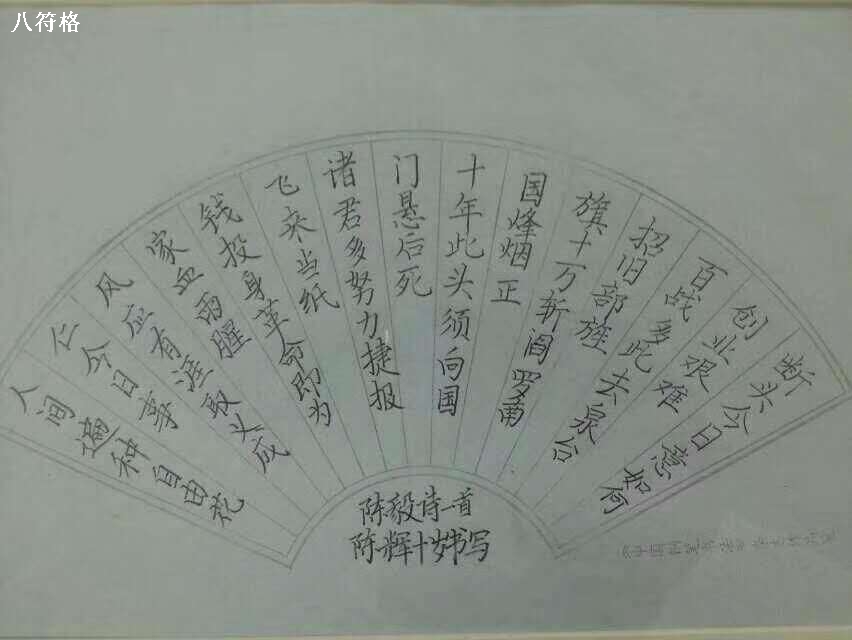 八符格
断头今日意如何
创业艰难
百战多此去泉台
招旧部旌
旗十万斩阎罗南
国烽烟正
十年此头须向国
门悬后死
诸君多努力捷报
飞来当纸
钱投身革命即为
家血雨腥
风应有涯取义成
仁今日事
人间遍种自由花
陈毅诗一首
陈辉十岁书写
《中国钢笔书法